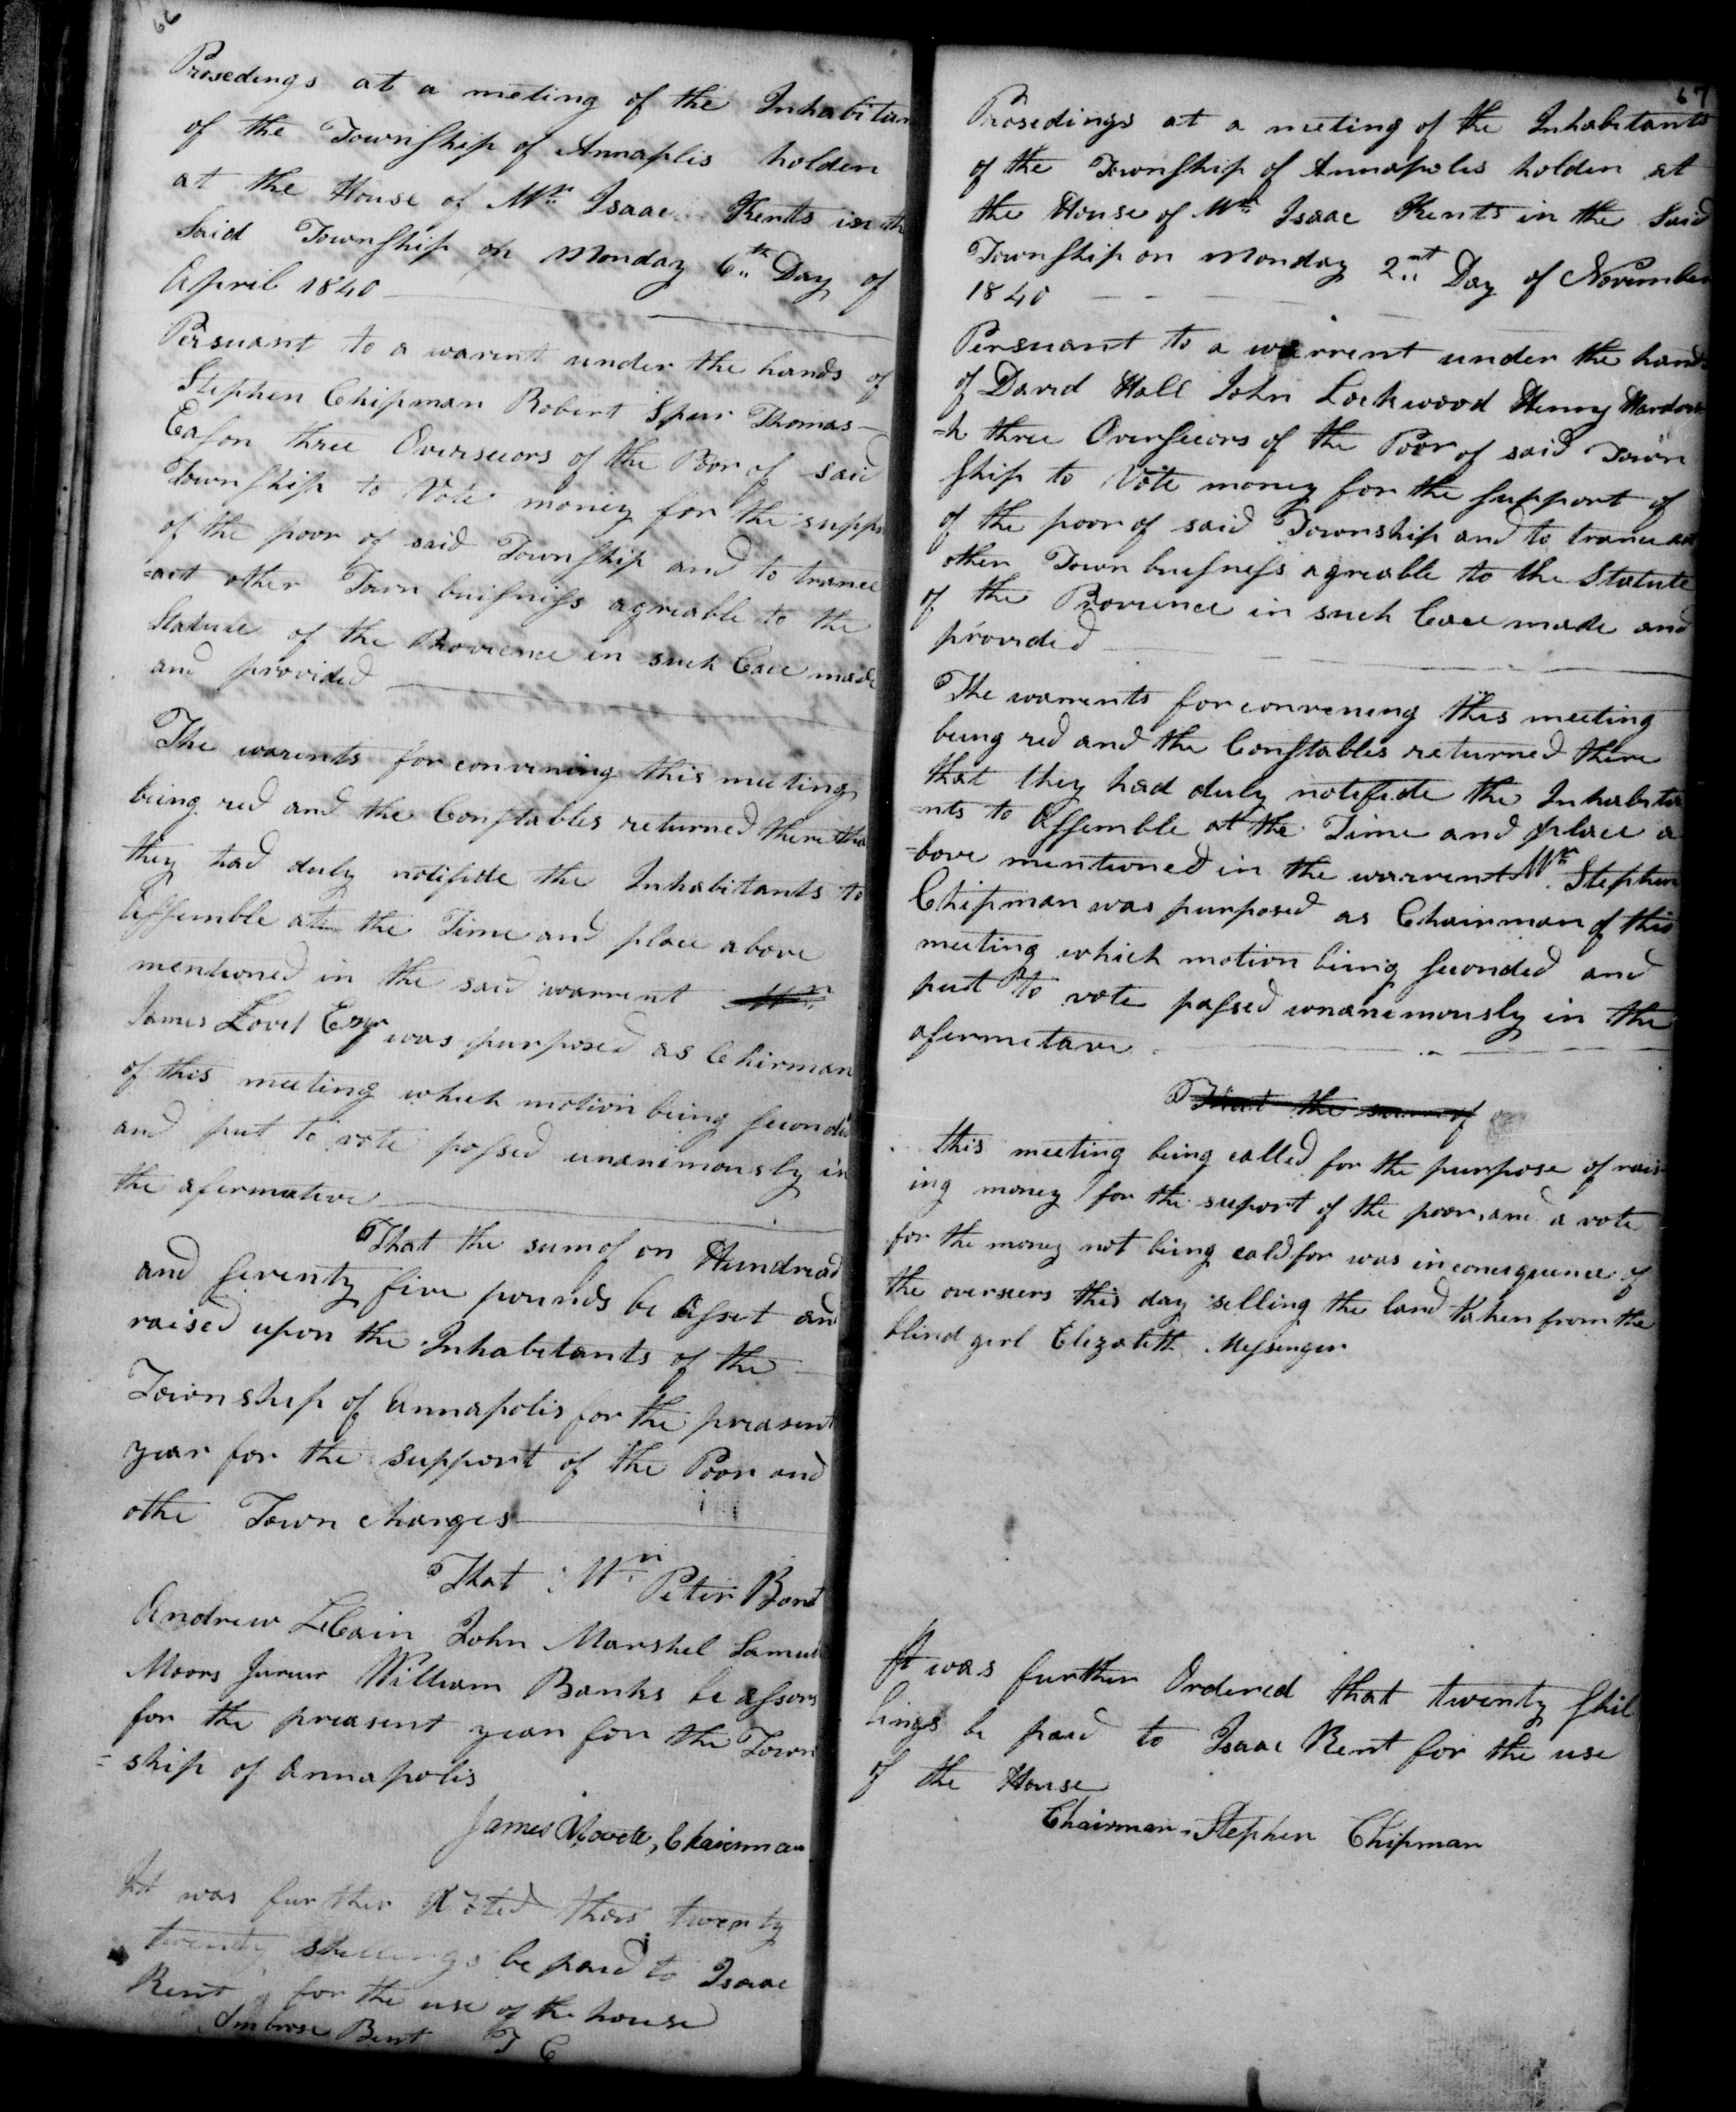 66
Prosedings at a meting of the Inhabitan
of the Township of Annaplis holden
at the House of Mr. Isaac Kents in th
Said Township on Monday 6th Day of
April 1840
Persuant to a warent under the hands of
Stephen Chipman Robert Spur Thomas
Eason three Overseeors of the Poor of said
Township to Vote money for the suppo
of the poor of said Township and to trance
=act other Town buisness agreable to the
Statute of the Provience in such Cace made
and provided
The warents for convening this meeting
being red and the Constables returned there tha
they had duly notifide the Inhabitants to
Assemble at the Time and place above
mentioned in the said warrent Mr.
James Lovet Esqr was purposed as Chirman
of this meeting which motion being seconde
and put to vote passed unanemously in
the afermative
That the sum of on Hundread
and seventy five pounds be Asset and
raised upon the Inhabitants of the
Township of Annapolis for the preasent
year for the support of the Poor and
othe Town charges
That Mr. Peter Bont
Andrew LeCain John Marshel Samuel
Moors Juner William Banks be assors
for the preasent year for the Town
=ship of Annapolis
James Lovete, Chairman
It was further Voted that twenty
twenty shillings be paid to Isaac
Kent for the use of the house
Ambrose Bent T C
67
Prosedings at a meeting of the Inhabitants
of the Township of Annapolis holden at
the House of Mr. Isaac Kents in the Said
Township on Monday 2nt Day of November
1840
Persuant to a warrent under the hands
of David Hall John Lockwood Henry Hardwi
=k three Overseeors of the Poor of said Town
ship to Vote money for the support of
of the poor of said Township and to trance act
other Town buisness agreable to the Statute
of the Provience in such Cace made and
provided
The warrents for convening this meeting
being red and the Constables returned there
that they had duly notifide the Inhabita
=nts to Assemble at the Time and place a
=bove mentioned in the warrent Mr. Stephen
Chipman was purposed as Chairman of this
meeting which motion being seconded and
put to vote passed unanemously in the
afermetave
That the sum of
this meeting being called for the purpose of rais
ing money for the suport of the poor, and a vote
for the money not being cald for was in conesquence of
the overseers this day selling the land taken from the
blind girl Elizabeth Messenger
It was further Ordered that twenty shil
lings be paid to Isaac Kent for the use
of the House
Chairman, Stephen Chipman